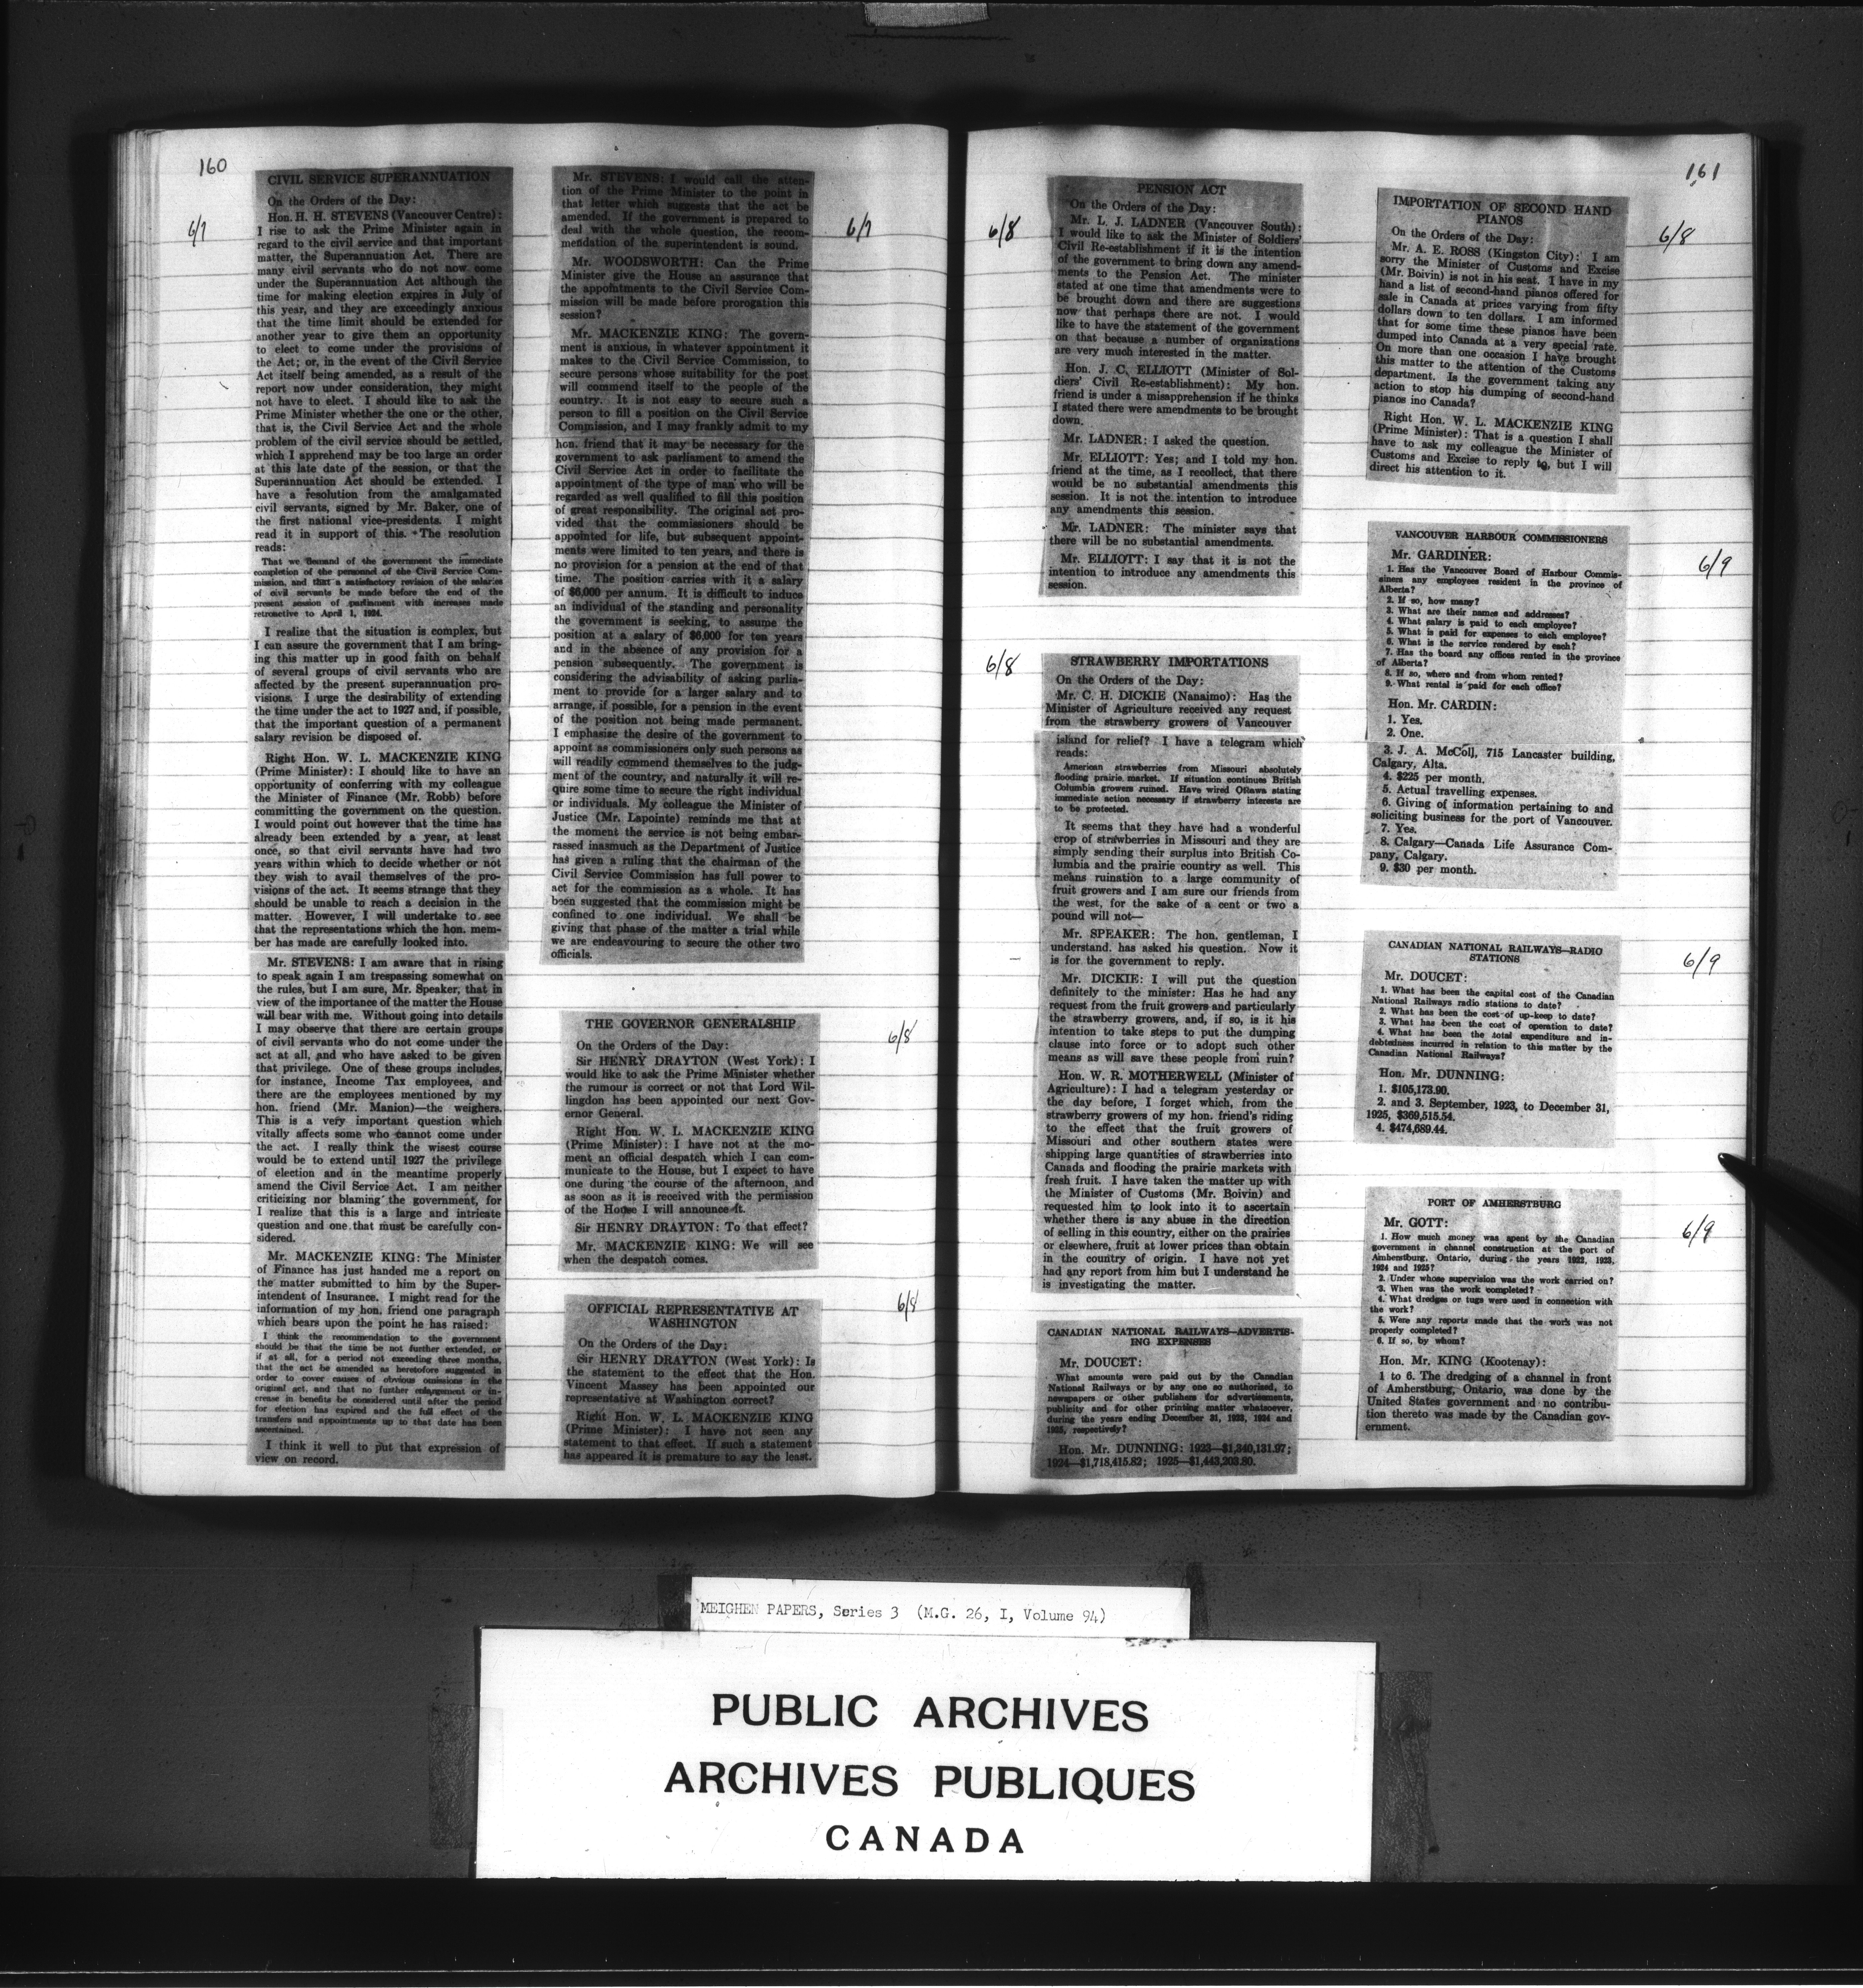 160
6/7
CIVIL SERVICE SUPERANNUATION
On the Orders of the Day:
Hon. H. H. STEVENS (Vancouver Centre):
I rise to ask the Prime Minister again in
regard to the civil service and that important
matter, the Superannuation Act. There are
many civil servants who do not now come
under the Superannuation Act although the
time for making election expires in July of
this year, and they are exceedingly anxious
that the time limit should be extended for
another year to give them an opportunity
to elect to come under the provisions of
the Act; or, in the event of the Civil Service
Act itself being amended, as a result of the
report now under consideration, they might
not have to elect. I should like to ask the
Prime Minister whether the one or the other,
that is, the Civil Service Act and the whole
problem of the civil service should be settled,
which I apprehend may be too large an order
at this late date of the session, or that the
Superannuation Act should be extended. I
have a resolution from the amalgamated
civil servants, signed by Mr. Baker, one of
the first national vice-presidents. I might
read it in support of this. The resolution
reads:
That we demand of the government the immediate
completion of the personnel of the Civil Service Com-
mission, and that a satisfactory revision of the salaries
of civil servants be made before the end of the
present session of parliament with increases made
retroactive to April 1, 1924.
I realize that the situation is complex, but
I can assure the government that I am bring-
ing this matter up in good faith on behalf
of several groups of civil servants who are
affected by the present superannuation pro-
visions. I urge the desirability of extending
the time under the act to 1927 and, if possible,
that the important question of a permanent
salary revision be disposed of.
Right Hon. W. L. MACKENZIE KING
(Prime Minister): I should like to have an
opportunity of conferring with my colleague
the Minister of Finance (Mr. Robb) before
committing the government on the question.
I would point out however that the time has
already been extended by a year, at least
once, so that civil servants have had two
years within which to decide whether or not
they wish to avail themselves of the pro-
visions of the act. It seems strange that they
should be unable to reach a decision in the
matter. However, I will undertake to see
that the representations which the hon. mem-
ber has made are carefully looked into.
Mr. STEVENS: I am aware that in rising
to speak again I am trespassing somewhat on
the rules, but I am sure, Mr. Speaker, that in
view of the importance of the matter the House
will bear with me. Without going into details
I may observe that there are certain groups
of civil servants who do not come under the
act at all, and who have asked to be given
that privilege. One of these groups includes,
for instance, Income Tax employees, and
there are the employees mentioned by my
hon. friend (Mr. Manion)—the weighers.
This is a very important question which
vitally affects some who cannot come under
the act. I really think the wisest course
would be to extend until 1927 the privilege
of election and in the meantime properly
amend the Civil Service Act. I am neither
criticizing nor blaming the government, for
I realize that this is a large and intricate
question and one that must be carefully con-
sidered.
Mr. MACKENZIE KING: The Minister
of Finance has just handed me a report on
the matter submitted to him by the Super-
intendent of Insurance. I might read for the
information of my hon. friend one paragraph
which bears upon the point he has raised:
I think the recommendation to the government
should be that the time be not further extended, or
if at all, for a period not exceeding three months,
that the act be amended as heretofore suggested in
order to cover causes of obvious omissions in the
original act, and that no further enlargement or in-
crease in benefits be considered until after the period
for election has expired and the full effect of the
transfers and appointments up to that date has been
ascertained.
I think it well to put that expression of
view on record.
6/7
Mr. STEVENS: I would call the atten-
tion of the Prime Minister to the point in
that letter which suggests that the act be
amended. If the government is prepared to
deal with the whole question, the recom-
mendation of the superintendent is sound.
Mr. WOODSWORTH: Can the Prime
Minister give the House an assurance that
the appointments to the Civil Service Com-
mission will be made before prorogation this
session?
Mr. MACKENZIE KING: The govern-
ment is anxious, in whatever appointment it
makes to the Civil Service Commission, to
secure persons whose suitability for the post
will commend itself to the people of the
country. It is not easy to secure such a
person to fill a position on the Civil Service
Commission, and I may frankly admit to my
hon. friend that it may be necessary for the
government to ask parliament to amend the
Civil Service Act in order to facilitate the
appointment of the type of man who will be
regarded as well qualified to fill this position
of great responsibility. The original act pro-
vided that the commissioners should be
appointed for life, but subsequent appoint-
ments were limited to ten years, and there is
no provision for a pension at the end of that
time. The position carries with it a salary
of $6,000 per annum. It is difficult to induce
an individual of the standing and personality
the government is seeking, to assume the
position at a salary of $6,000 for ten years
and in the absence of any provision for a
pension subsequently. The government is
considering the advisability of asking parlia-
ment to provide for a larger salary and to
arrange, if possible, for a pension in the event
of the position not being made permanent.
I emphasise the desire of the government to
appoint as commissioners only such persons as
will readily commend themselves to the judg-
ment of the country, and naturally it will re-
quire some time to secure the right individual
or individuals. My colleague the Minister of
Justice (Mr. Lapointe) reminds me that at
the moment the service is not being embar-
rassed inasmuch as the Department of Justice
has given a ruling that the chairman of the
Civil Service Commission has full power to
act for the commission as a whole. It has
been suggested that the commission might be
confined to one individual. We shall be
giving that phase of the matter a trial while
we are endeavouring to secure the other two
officials.
6/8
THE GOVERNOR GENERALSHIP
On the Orders of the Day:
Sir HENRY DRAYTON (West York): I
would like to ask the Prime Minister whether
the rumour is correct or not that Lord Wil-
lingdon has been appointed our next Gov-
ernor General.
Right Hon. W. L. MACKENZIE KING
(Prime Minister): I have not at the mo-
ment an official despatch which I can com-
municate to the House, but I expect to have
one during the course of the afternoon, and
as soon as it is received with the permission
of the House I will announce it.
Sir HENRY DRAYTON: To that effect?
Mr. MACKENZIE KING: We will see
when the despatch comes.
6/8
OFFICIAL REPRESENTATIVE AT
WASHINGTON
On the Orders of the Day:
Sir HENRY DRAYTON (West York): Is
the statement to the effect that the Hon.
Vincent Massey has been appointed our
representative at Washington correct?
Right Hon. W. L. MACKENZIE KING
(Prime Minister): I have not seen any
statement to that effect. If such a statement
has appeared it is premature to say the least.
161
6/8
PENSION ACT
On the Orders of the Day:
Mr. L. J. LADNER (Vancouver South):
I would like to ask the Minister of Soldiers'
Civil Re-establishment if it is the intention
of the government to bring down any amend-
ments to the Pension Act. The minister
stated at one time that amendments were to
be brought down and there are suggestions
now that perhaps there are not. I would
like to have the statement of the government
on that because a number of organizations
are very much interested in the matter.
Hon. J. C. ELLIOTT (Minister of Sol-
diers' Civil Re-establishment): My hon.
friend is under a misapprehension if he thinks
I stated there were amendments to be brought
down.
Mr. LADNER: I asked the question.
Mr. ELLIOTT: Yes; and I told my hon.
friend at the time, as I recollect, that there
would be no substantial amendments this
session. It is not the intention to introduce
any amendments this session.
Mr. LADNER: The minister says that
there will be no substantial amendments.
Mr. ELLIOTT: I say that it is not the
intention to introduce any amendments this
session.
6/8
STRAWBERRY IMPORTATIONS
On the Orders of the Day:
Mr. C. H. DICKIE (Nanaimo): Has the
Minister of Agriculture received any request
from the strawberry growers of Vancouver
island for relief? I have a telegram which
reads:
American strawberries from Missouri absolutely
flooding prairie market. If situation continues British
Columbia growers ruined. Have wired Ottawa stating
immediate action necessary if strawberry interests are
to be protected.
It seems that they have had a wonderful
crop of strawberries in Missouri and they are
simply sending their surplus into British Co-
lumbia and the prairie country as well. This
means ruination to a large community of
fruit growers and I am sure our friends from
the west, for the sake of a cent or two a
pound will not—
Mr. SPEAKER: The hon. gentleman, I
understand. has asked his question. Now it
is for the government to reply.
Mr. DICKIE: I will put the question
definitely to the minister: Has he had any
request from the fruit growers and particularly
the strawberry growers, and, if so, is it his
intention to take steps to put the dumping
clause into force or to adopt such other
means as will save these people from ruin?
Hon. W. R. MOTHERWELL (Minister of
Agriculture): I had a telegram yesterday or
the day before, I forget which, from the
strawberry growers of my hon. friend's riding
to the effect that the fruit growers of
Missouri and other southern states were
shipping large quantities of strawberries into
Canada and flooding the prairie markets with
fresh fruit. I have taken the matter up with
the Minister of Customs (Mr. Boivin) and
requested him to look into it to ascertain
whether there is any abuse in the direction
of selling in this country, either on the prairies
or elsewhere, fruit at lower prices than obtain
in the country of origin. I have not yet
had any report from him but I understand he
is investigating the matter.
CANADIAN NATIONAL RAILWAYS—ADVERTIS-
ING EXPENSES
Mr. DOUCET:
What amounts were paid out by the Canadian
National Railways or by any one so authorized, to
newspapers or other publishers for advertisements,
publicity and for other printing matter whatsoever,
during the years ending December 31, 1923, 1924 and
1925, respectively?
Hon. Mr. DUNNING: 1923—$1,340,131.97;
1924—$1,718,415.82; 1925—$1,443,203.80.
6/8
IMPORTATION OF SECOND HAND
PIANOS
On the Orders of the Day:
Mr. A. E. ROSS (Kingston City): I am
sorry the Minister of Customs and Excise
(Mr. Boivin) is not in his seat. I have in my
hand a list of second-hand pianos offered for
sale in Canada at prices varying from fifty
dollars down to ten dollars. I am informed
that for some time these pianos have been
dumped into Canada at a very special rate.
On more than one occasion I have brought
this matter to the attention of the Customs
department. Is the government taking any
action to stop his dumping of second-hand
pianos ino Canada?
Right Hon. W. L. MACKENZIE KING
(Prime Minister): That is a question I shall
have to ask my colleague the Minister of
Customs and Excise to reply to, but I will
direct his attention to it.
6/9
VANCOUVER HARBOUR COMMISSIONERS
Mr. GARDINER:
1. Has the Vancouver Board of Harbour Commis-
sioners any employees resident in the province of
Alberta?
2. If so, how many?
3. What are their names and addresses?
4. What salary is paid to each employee?
5. What is paid for expenses to each employee?
6. What is the service rendered by each?
7. Has the board any offices rented in the province
of Alberta?
8. If so, where and from whom rented?
9. What rental is paid for each office?
Hon. Mr. CARDIN:
1. Yes.
2. One.
3. J. A. McColl, 715 Lancaster building,
Calgary, Alta.
4. $225 per month.
5. Actual travelling expenses.
6. Giving of information pertaining to and
soliciting business for the port of Vancouver.
7. Yes.
8. Calgary—Canada Life Assurance Com-
pany, Calgary.
9. $30 per month.
6/9
CANADIAN NATIONAL RAILWAYS—RADIO
STATIONS
Mr. DOUCET:
1. What has been the capital cost of the Canadian
National Railways radio stations to date?
2. What has been the cost of up-keep to date?
3. What has been the cost of operation to date?
4. What has been the total expenditure and in-
debtedness incurred in relation to this matter by the
Canadian National Railways?
Hon. Mr. DUNNING:
1. $105,173.90.
2. and 3. September, 1923, to December 31,
1925, $369,515.54.
4. $474,689.44.
6/9
PORT OF AMHERSTBURG
Mr. GOTT:
1. How much money was spent by the Canadian
government in channel construction at the port of
Amherstburg, Ontario, during the years 1922, 1923,
1924 and 1925?
2. Under whose supervision was the work carried on?
3. When was the work completed?
4. What dredges or tugs were used in connection with
the work?
5. Were any reports made that the work was not
properly completed?
6. If so, by whom?
Hon. Mr. KING (Kootenay):
1 to 6. The dredging of a channel in front
of Amherstburg, Ontario, was done by the
United States government and no contribu-
tion thereto was made by the Canadian gov-
ernment.
MEIGHEN PAPERS, Series 3 (M.G. 26, I, Volume 94)
PUBLIC ARCHIVES
ARCHIVES PUBLIQUES
CANADA